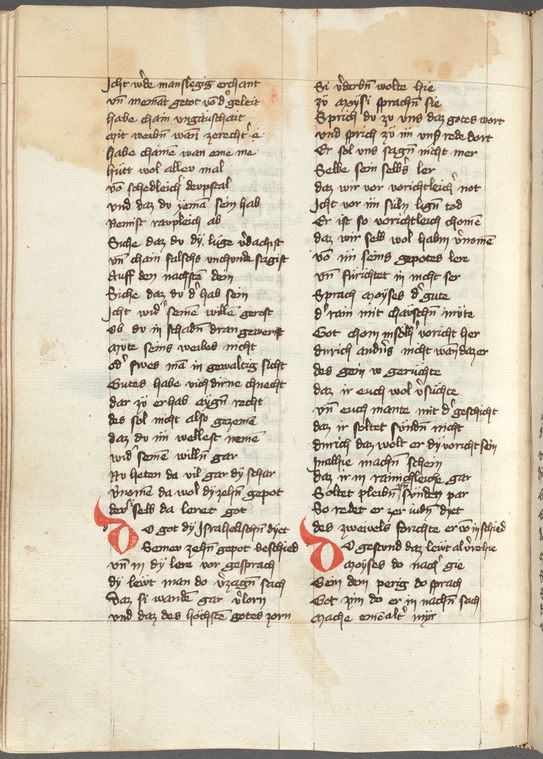 Icht wˀde manslegig erchant
vn̄ memāt getot vō dˀ geleit
habe chain vngäuscheit
mit weibn̄ wan̄ zerecht e
habe chainē wan eine me
hütt wol aller mal
vō schedleichˀ dewpstal
vnd daz du yemā sein hab
Nemist rawpleich ab
Siche daz du dy lüge vˀdachist
vn̄ chain falschs vrchunde sagist
Auff den nachsten dein
Siche daz du dˀ hab sein
Icht widˀ seinē wille gerest
Ob du in schadn̄ dran gewerst
Müte seins weibes nicht
odˀ swes mā in gewaltig sicht
Gutes habe vich dirne chnecht
dar zü erhab aygn̄ recht
des sol nicht also gezemē
daz du im wellest nemē
widˀ seinē willn̄ gar
Nu heten da vil gar dy schar
vˀnomē da wol dy zehn̄ gepot
der selb da leret got
Do got dy Israhellschn̄ dyet
Seinew zehn̄ gepot beschied
vn̄ in dy lere vor gesprach
dy lewt man do vˀzagn̄ sach
Daz si warden gar vˀlorn
vnd daz des höchste gotes zorn
Si vˀderbn̄ wolte hie
zü Moysi sprachn̄ sie
Sprich du zu vns daz gotes wort
vnd sprich zü im vns rede dort
Er sol vns sagn̄ nicht mer
Selbe sein selbˀs ler
daz wir vor vorichtleichˀ not
Icht vor im süln lign̄ tod
Er ist so vorichtleich chomē
daz wir selb wol habm̄ vˀnomē
vō im seins gepotes lere
vn̄ fürichtet in nicht ser
Sprach Moyses dˀ gute
dˀ rain mit chäwschn̄ müte
Got chom in solhˀ voricht her
durich andˀs nicht wan daz er
des gein w gerüchte
daz ir euch wol vˀsüchte
vn̄ euch mante mit dˀ geschicht
daz ir soltet sündn̄ nicht
durich daz wolt er dy voricht sein
In alhie machn̄ schein
daz ir in rainichleiche gar
Soltet pleibn̄ vor sünden par
So redet er zer iudn̄ dyet
des zweivels forichte er vō in schied
Do gestund daz lewt al vˀrˀ hie
Moyses do nachˀ gie
Sein dem perig do sprach
Got zim do er in nachn̄ sach
Mache einē altˀ mir